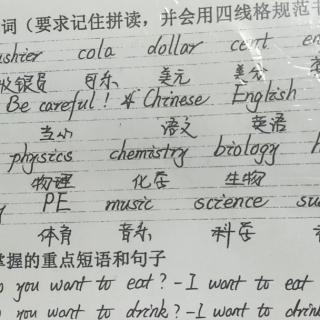 词（要求记住拼读，并会用四线格规范书
cola dollar cent
收银员 可乐 美元 美分
Be careful! * Chinese English
当心 语文 英语
physics chemistry biology
物理 化学 生物
PE music science
体育 音乐 科学
掌握的重点短语和句子
you want to eat? - I want to eat
you want to drink? - I want to drink